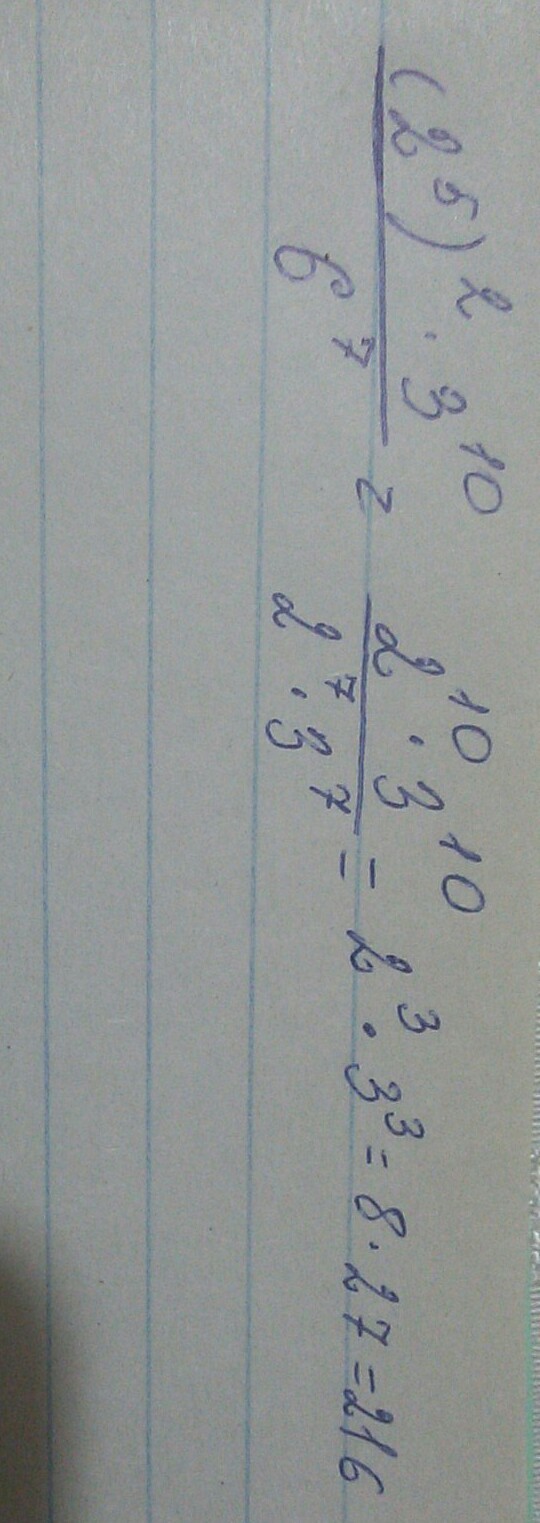 \frac{(2^5)^2 \cdot 3^{10}}{6^7} = \frac{2^{10} \cdot 3^{10}}{2^7 \cdot 3^7} = 2^3 \cdot 3^3 = 8 \cdot 27 = 216